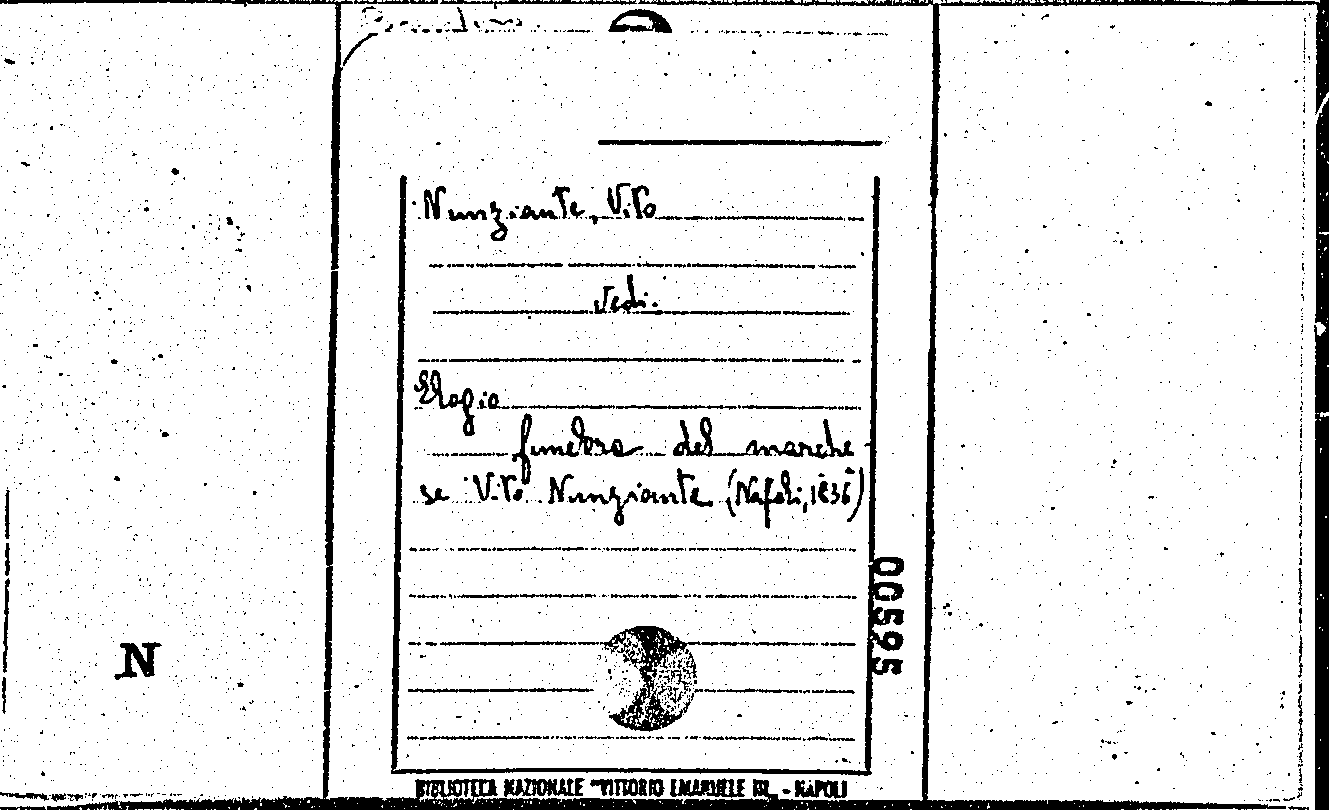 Nunziante, Vito
vedi.
Elogio
funebre del marche-
se Vito Nunziante (Napoli, 1836)
00595
N
BIBLIOTECA NAZIONALE "VITTORIO EMANUELE III„ - NAPOLI